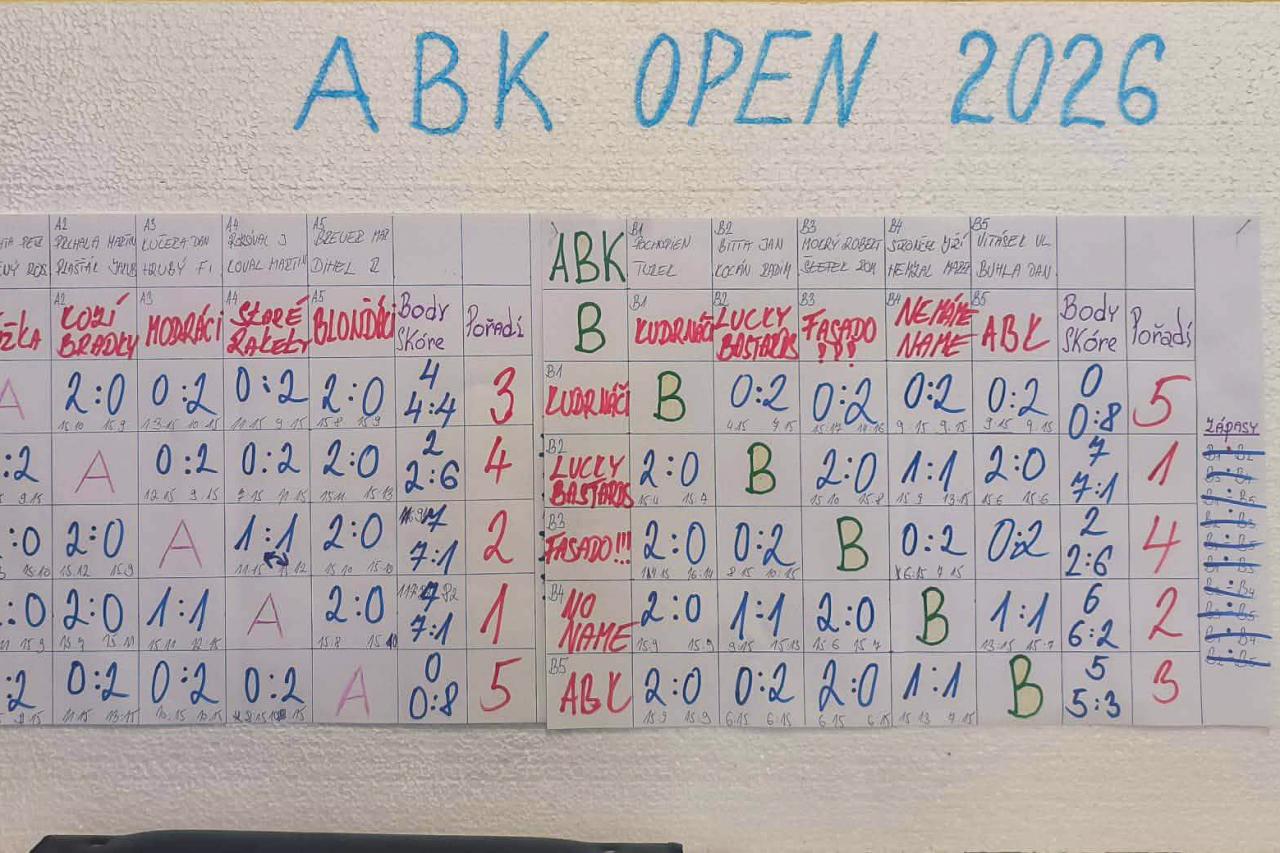 ABK OPEN 2026
A2 A3 A4 A5
PRCHALA MARTIN KUČERA DAN BREUER
HRUBÝ FI LOVAL MARTIN
A2 A3 A4 A5
KOZÍ BRADKY MODRÁCI STARÉ RAKETY BLONĎÁCI Body Skóre Pořadí
A 2:0 0:2 0:2 2:0 4 4:4 3
15 10 15 9 13 15 10 15 11 15 9 15 15 8 15 9
:2 A 0:2 0:2 2:0 2 2:6 4
9 15 12 15 9 15 7 15 11 15 15 11 15 13
:0 2:0 A 1:1 2:0 7 7:1 2
15 10 15 12 15 9 11 15 15 12 15 10 15 10
:0 2:0 1:1 A 2:0 7 7:1 1
15 9 15 7 15 11 15 11 12 15 15 8 15 10
:2 0:2 0:2 0:2 A 0 0:8 5
11 15 13 15 10 15 10 15
ABK B1 B2 B3 B4 B5
POCHOPIEN BITTA JAN MOKRÝ ROBERT VITÁSEK VL
TUREK KOCÁN RADIM BUHLA DAN
B B1 B2 B3 B4 B5
KUDRNÁČI LUCKY BASTARDS FASADO ??? NEMÁME NAME ABK Body Skóre Pořadí
B1 KUDRNÁČI B 0:2 0:2 0:2 0:2 0 0:8 5
4 15 7 15 15 17 14 16 9 15 9 15 9 15 9 15
B2 LUCKY BASTARDS 2:0 B 2:0 1:1 2:0 7 7:1 1
15 4 15 7 15 10 15 8 15 9 13 15 15 6 15 6
B3 FASADO!!! 2:0 0:2 B 0:2 0:2 2 2:6 4
8 15 10 15 6 15 7 15
B4 NO NAME 2:0 1:1 2:0 B 1:1 6 6:2 2
15 9 15 9 9 15 15 13 15 6 15 7 13 15 15 7
B5 ABK 2:0 0:2 2:0 1:1 B 5 5:3 3
15 9 15 9 6 15 6 15 6 15 6 15 15 13 7 15
ZÁPASY